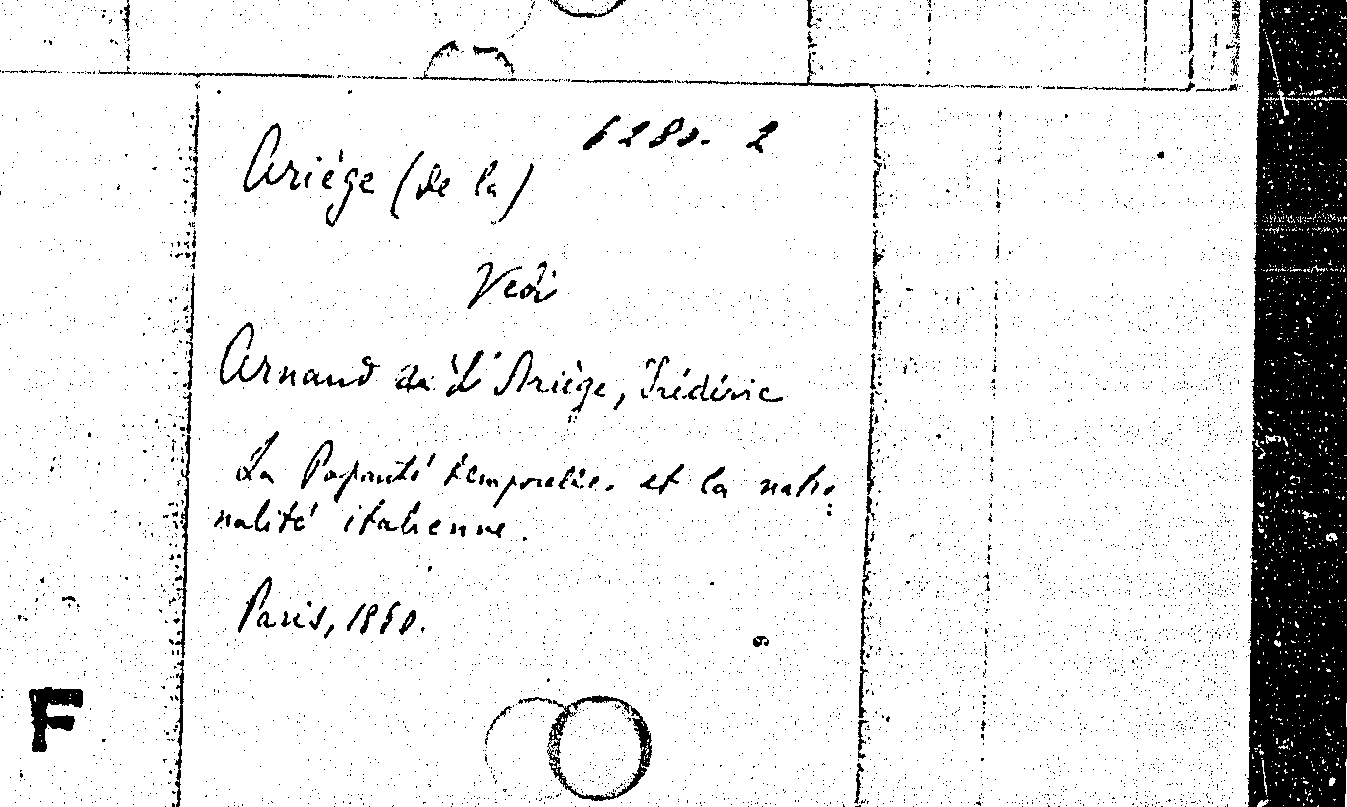 6280. 2
Ariége (de la)
Vedi
Arnaud de L'Ariège, Frédéric
La Papauté temporelle et la natio
nalité italienne.
Paris, 1860.
F